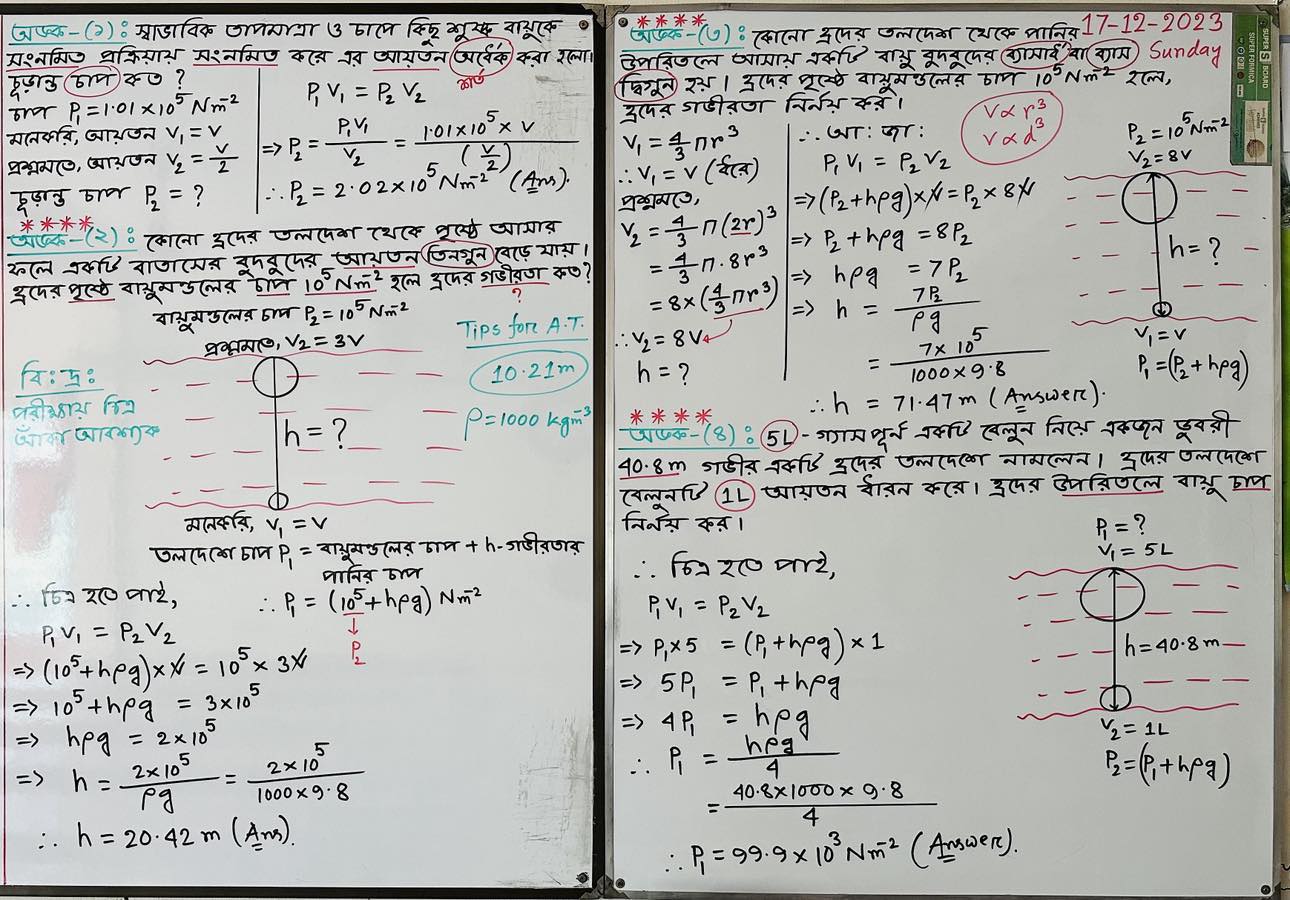 অংক-(১): স্বাভাবিক তাপমাত্রা ও চাপে কিছু শুষ্ক বায়ুকে
সংনমিত প্রক্রিয়ায় সংনমিত করে এর আয়তন অর্ধেক করা হলো।
চূড়ান্ত চাপ কত?
শর্ত
চাপ P₁=1.01×10⁵ Nm⁻²
মনেকরি, আয়তন V₁=V
প্রশ্নমতে, আয়তন V₂=V/2
চূড়ান্ত চাপ P₂=?
P₁V₁=P₂V₂
⇒P₂=P₁V₁/V₂=1.01×10⁵×V/(V/2)
∴P₂=2.02×10⁵Nm⁻² (Ans).
****
অংক-(২): কোনো হ্রদের তলদেশ থেকে পৃষ্ঠে আসার
ফলে একটি বাতাসের বুদবুদের আয়তন তিনগুন বেড়ে যায়।
হ্রদের পৃষ্ঠে বায়ুমন্ডলের চাপ 10⁵Nm⁻² হলে হ্রদের গভীরতা কত?
?
বায়ুমন্ডলের চাপ P₂=10⁵Nm⁻²
প্রশ্নমতে, V₂=3V
Tips for A.T.
10.21m
ρ=1000 kgm⁻³
বি:দ্র:
পরীক্ষায় চিত্র
আঁকা আবশ্যক
h=?
মনেকরি, V₁=V
তলদেশে চাপ P₁=বায়ুমন্ডলের চাপ+h-গভীরতার
পানির চাপ
∴P₁=(10⁵+hρg) Nm⁻²
↓
P₂
∴ চিত্র হতে পাই,
P₁V₁=P₂V₂
⇒(10⁵+hρg)×V=10⁵×3V
⇒10⁵+hρg=3×10⁵
⇒hρg=2×10⁵
⇒h=2×10⁵/ρg=2×10⁵/1000×9.8
∴h=20.42m (Ans).
17-12-2023
Sunday
****
অংক-(৩): কোনো হ্রদের তলদেশ থেকে পানির
উপরিতলে আসায় একটি বায়ু বুদবুদের ব্যাসার্ধ বা ব্যাস
দ্বিগুন হয়। হ্রদের পৃষ্ঠে বায়ুমন্ডলের চাপ 10⁵Nm⁻² হলে,
হ্রদের গভীরতা নির্নয় কর।
V∝r³
V∝d³
V₁=4/3 πr³
∴V₁=V (ধরি)
প্রশ্নমতে,
V₂=4/3 π(2r)³
=4/3 π.8r³
=8×(4/3 πr³)
∴V₂=8V
h=?
∴আ:জা:
P₁V₁=P₂V₂
⇒(P₂+hρg)×V=P₂×8V
⇒P₂+hρg=8P₂
⇒hρg=7P₂
⇒h=7P₂/ρg
=7×10⁵/1000×9.8
∴h=71.47m (Answer).
P₂=10⁵Nm⁻²
V₂=8V
h=?
V₁=V
P₁=(P₂+hρg)
****
অংক-(৪): 5L-গ্যাসপূর্ন একটি বেলুন নিয়ে একজন ডুবরী
40.8m গভীর একটি হ্রদের তলদেশে নামলেন। হ্রদের তলদেশে
বেলুনটি 1L আয়তন ধারন করে। হ্রদের উপরিতলে বায়ু চাপ
নির্নয় কর।
∴ চিত্র হতে পাই,
P₁V₁=P₂V₂
⇒P₁×5=(P₁+hρg)×1
⇒5P₁=P₁+hρg
⇒4P₁=hρg
∴P₁=hρg/4
=40.8×1000×9.8/4
∴P₁=99.9×10³Nm⁻² (Answer).
P₁=?
V₁=5L
h=40.8m
V₂=1L
P₂=(P₁+hρg)
SUPER S BOARD
SUPER FORMICA